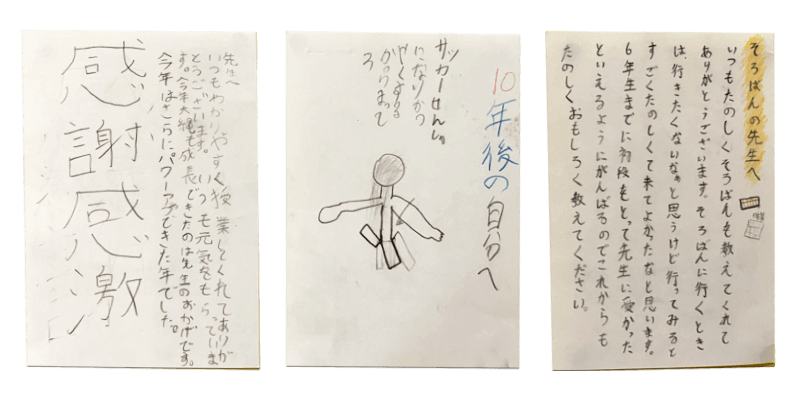 先生へ
いつもわかりやすく授業をしてくれてありが
とうございます。いつも元気をもらっていま
す。今年大縄も成長できたのは先生のおかげです。
今年はさらにパワーアップできた年でした。
感謝感激
10年後の自分へ
サッカーせんしゅ
になりかつ
やくする
からまって
ろ
そろばんの先生へ
いつもたのしくそろばんを教えてくれて
ありがとうございます。そろばんに行くとき
は、行きたくないなぁと思うけど行ってみると
すごくたのしくて来てよかったなと思います。
6年生までに初段をとって先生に受かった
といえるようにがんばるのでこれからも
たのしくおもしろく教えてください。